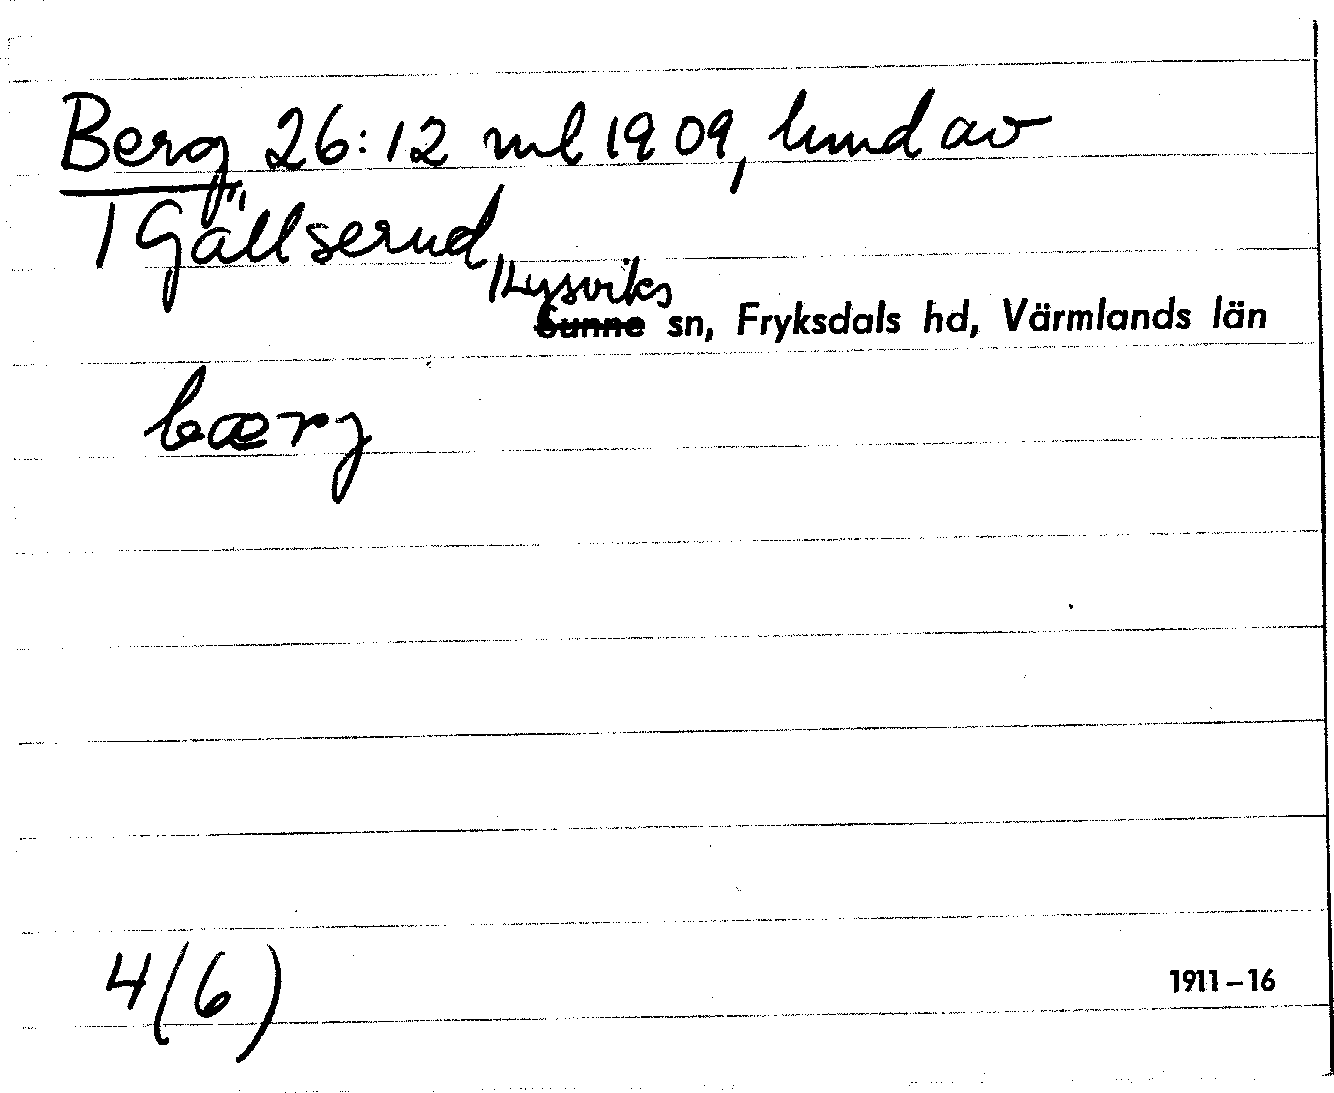 Berg 26:12 ml 1909, lund av
1 Gällserud,
Lysviks
Sunne sn, Fryksdals hd, Värmlands län
bærj
4(6)
1911–16